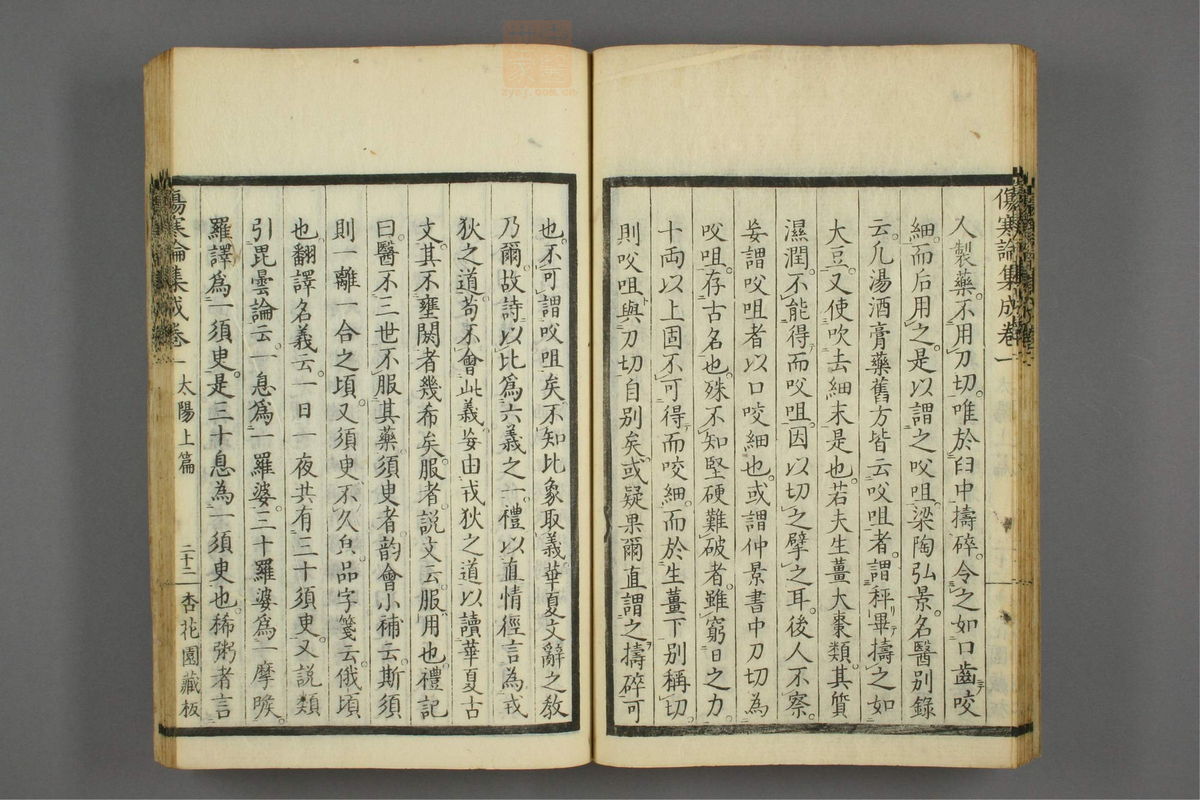 傷寒論集成卷一
人製藥。不用刀切。唯於臼中擣碎。令之如口齒咬
細。而后用之。是以謂之㕮咀。梁陶弘景。名醫別錄
云。凡湯酒膏藥舊方皆云㕮咀者。謂秤畢擣之如
大豆。又使吹去細末是也。若夫生薑大棗類。其質
濕潤。不能得而㕮咀。因以切之擘之耳。後人不察。
妄謂㕮咀者以口咬細也。或謂仲景書中刀切為
㕮咀。存古名也。殊不知堅硬難破者。雖窮日之力
十兩以上固不可得而咬細。而於生薑下別稱切。
則㕮咀與刀切自別矣。或疑果爾直謂之擣碎可
也。不可謂㕮咀矣。不知比象取義。華夏文辭之教
乃爾。故詩以比爲六義之一。禮以直情徑言為戎
狄之道。苟不會此義。妄由戎狄之道以讀華夏古
文。其不壅閼者幾希矣。服者。説文云。服用也。禮記
曰。醫不三世不服其藥。須臾者。韵會小補云。斯須
則一離一合之頃。又須臾不久皃。品字箋云。俄頃
也。翻譯名義云。一日一夜共有三十須臾。又説類
引毘曇論云。一息爲一羅婆。三十羅婆爲一摩睺
羅。譯爲一須臾。是三十息為一須臾也。稀粥者。言
傷寒論集成卷一 太陽上篇 二十二 杏花園藏板
zysj.com.cn